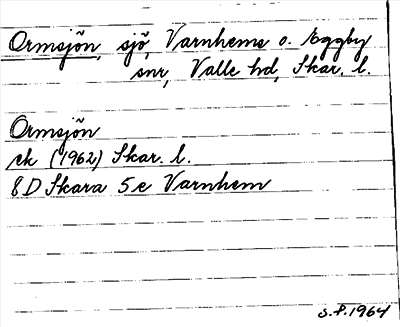 Ormsjön, sjö, Varnhems o. Eggby
snr, Valle hd, Skar. l.
Ormsjön
ek (1962) Skar. l.
8 D Skara 5 e Varnhem
S.P. 1964